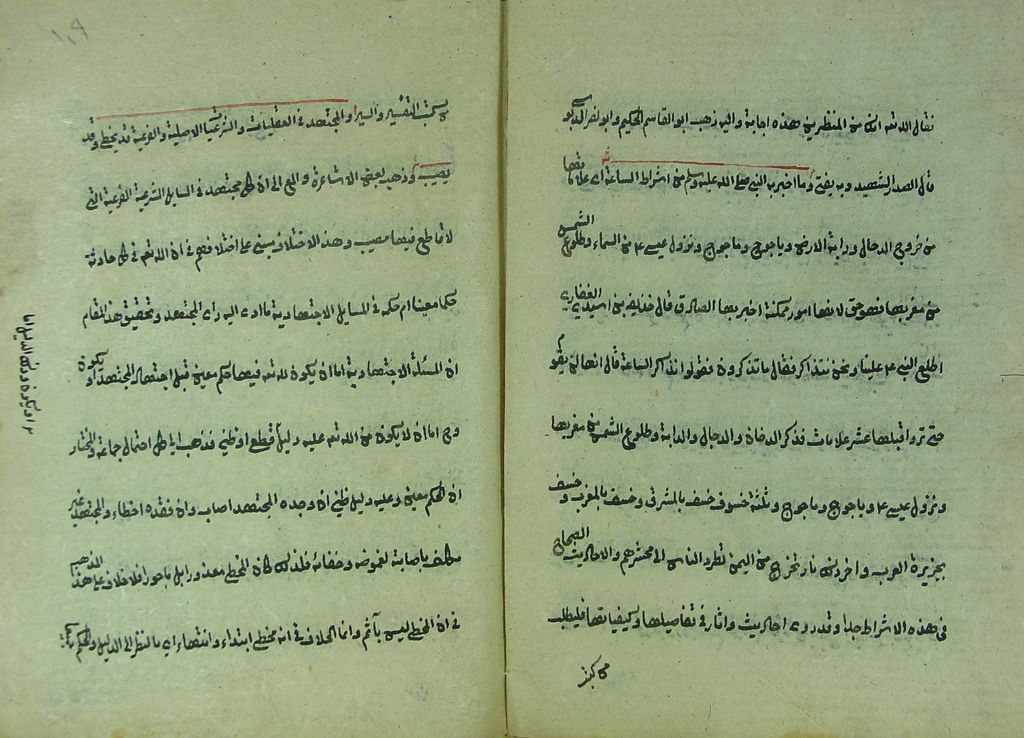 فقال الله تعه انك من المنظرين هذه اجابة واليه ذهب ابو القاسم الحكيم وابو نصر الدبوسي
قال الصدر الشهيد وبه يفتى وما اخبر به النبي صلى الله عليه وسلم من اشراط الساعة اى علاماتها
من خروج الدجال ودابة الارض وياجوج وماجوج ونزول عيسى ٤م من السماء وطلوع الشمس
من مغربها فهو حق لانها امور ممكنة اخبر بها الصادق قال حذيفة بن اسيد الغفارى
اطلع النبي ٤م علينا ونحن نتذاكر فقال ما تذكرون فقولوا نذكر الساعة قال انها لن تقوم
حتى تروا قبلها عشر علامات فذكر الدخان والدجال والدابة وطلوع الشمس من مغربها
ونزول عيسى ٤م وياجوج وماجوج وثلثة خسوف خسف بالمشرق وخسف بالمغرب وخسف
بجزيرة العرب واخر ذلك نار تخرج من اليمن تطرد الناس الى محشرهم والاحاديث الصحاح
فى هذه الاشراط جدا وقد روى احاديث واثار فى تفاصيلها وكيفياتها فليطلب
من كتب
من كتب التفسير والسير والمجتهد فى العقليات والشرعيات الاصلية والفرعية قد يخطى وقد
يصيب وذهب بعض الاشاعرة والمع الى ان كل مجتهد فى المسايل الشرعية الفرعية التى
لا قاطع فيها مصيب وهذا الاختلاف مبنى على اختلافهم فى ان لله تعه فى كل حادثة
حكما معينا ام حكمه فى المسايل الاجتهادية ما ادى اليه راى المجتهد وتحقيق هذا المقام
ان المسئلة الاجتهادية اما ان يكون لله تعه فيها حكم معين قبل اجتهاد المجتهد او يكون
وح اما ان لا يكون من الله تعه عليه دليل قطعى او ظنى فذهب الى كل احتمال جماعة والمختار
ان الحكم معين وعليه دليل ظنى ان وجده المجتهد اصاب وان فقده اخطاء والمجتهد غير
مكلف باصابته لغموضه وخفائه فلذلك كان المخطى معذورا بل ماجورا فلا خلاف على هذا المذهب
فى ان المخطى ليس بآثم وانما الخلاف فى انه مخطى ابتداء وانتهاء اى بالنظر الى الدليل والحكم